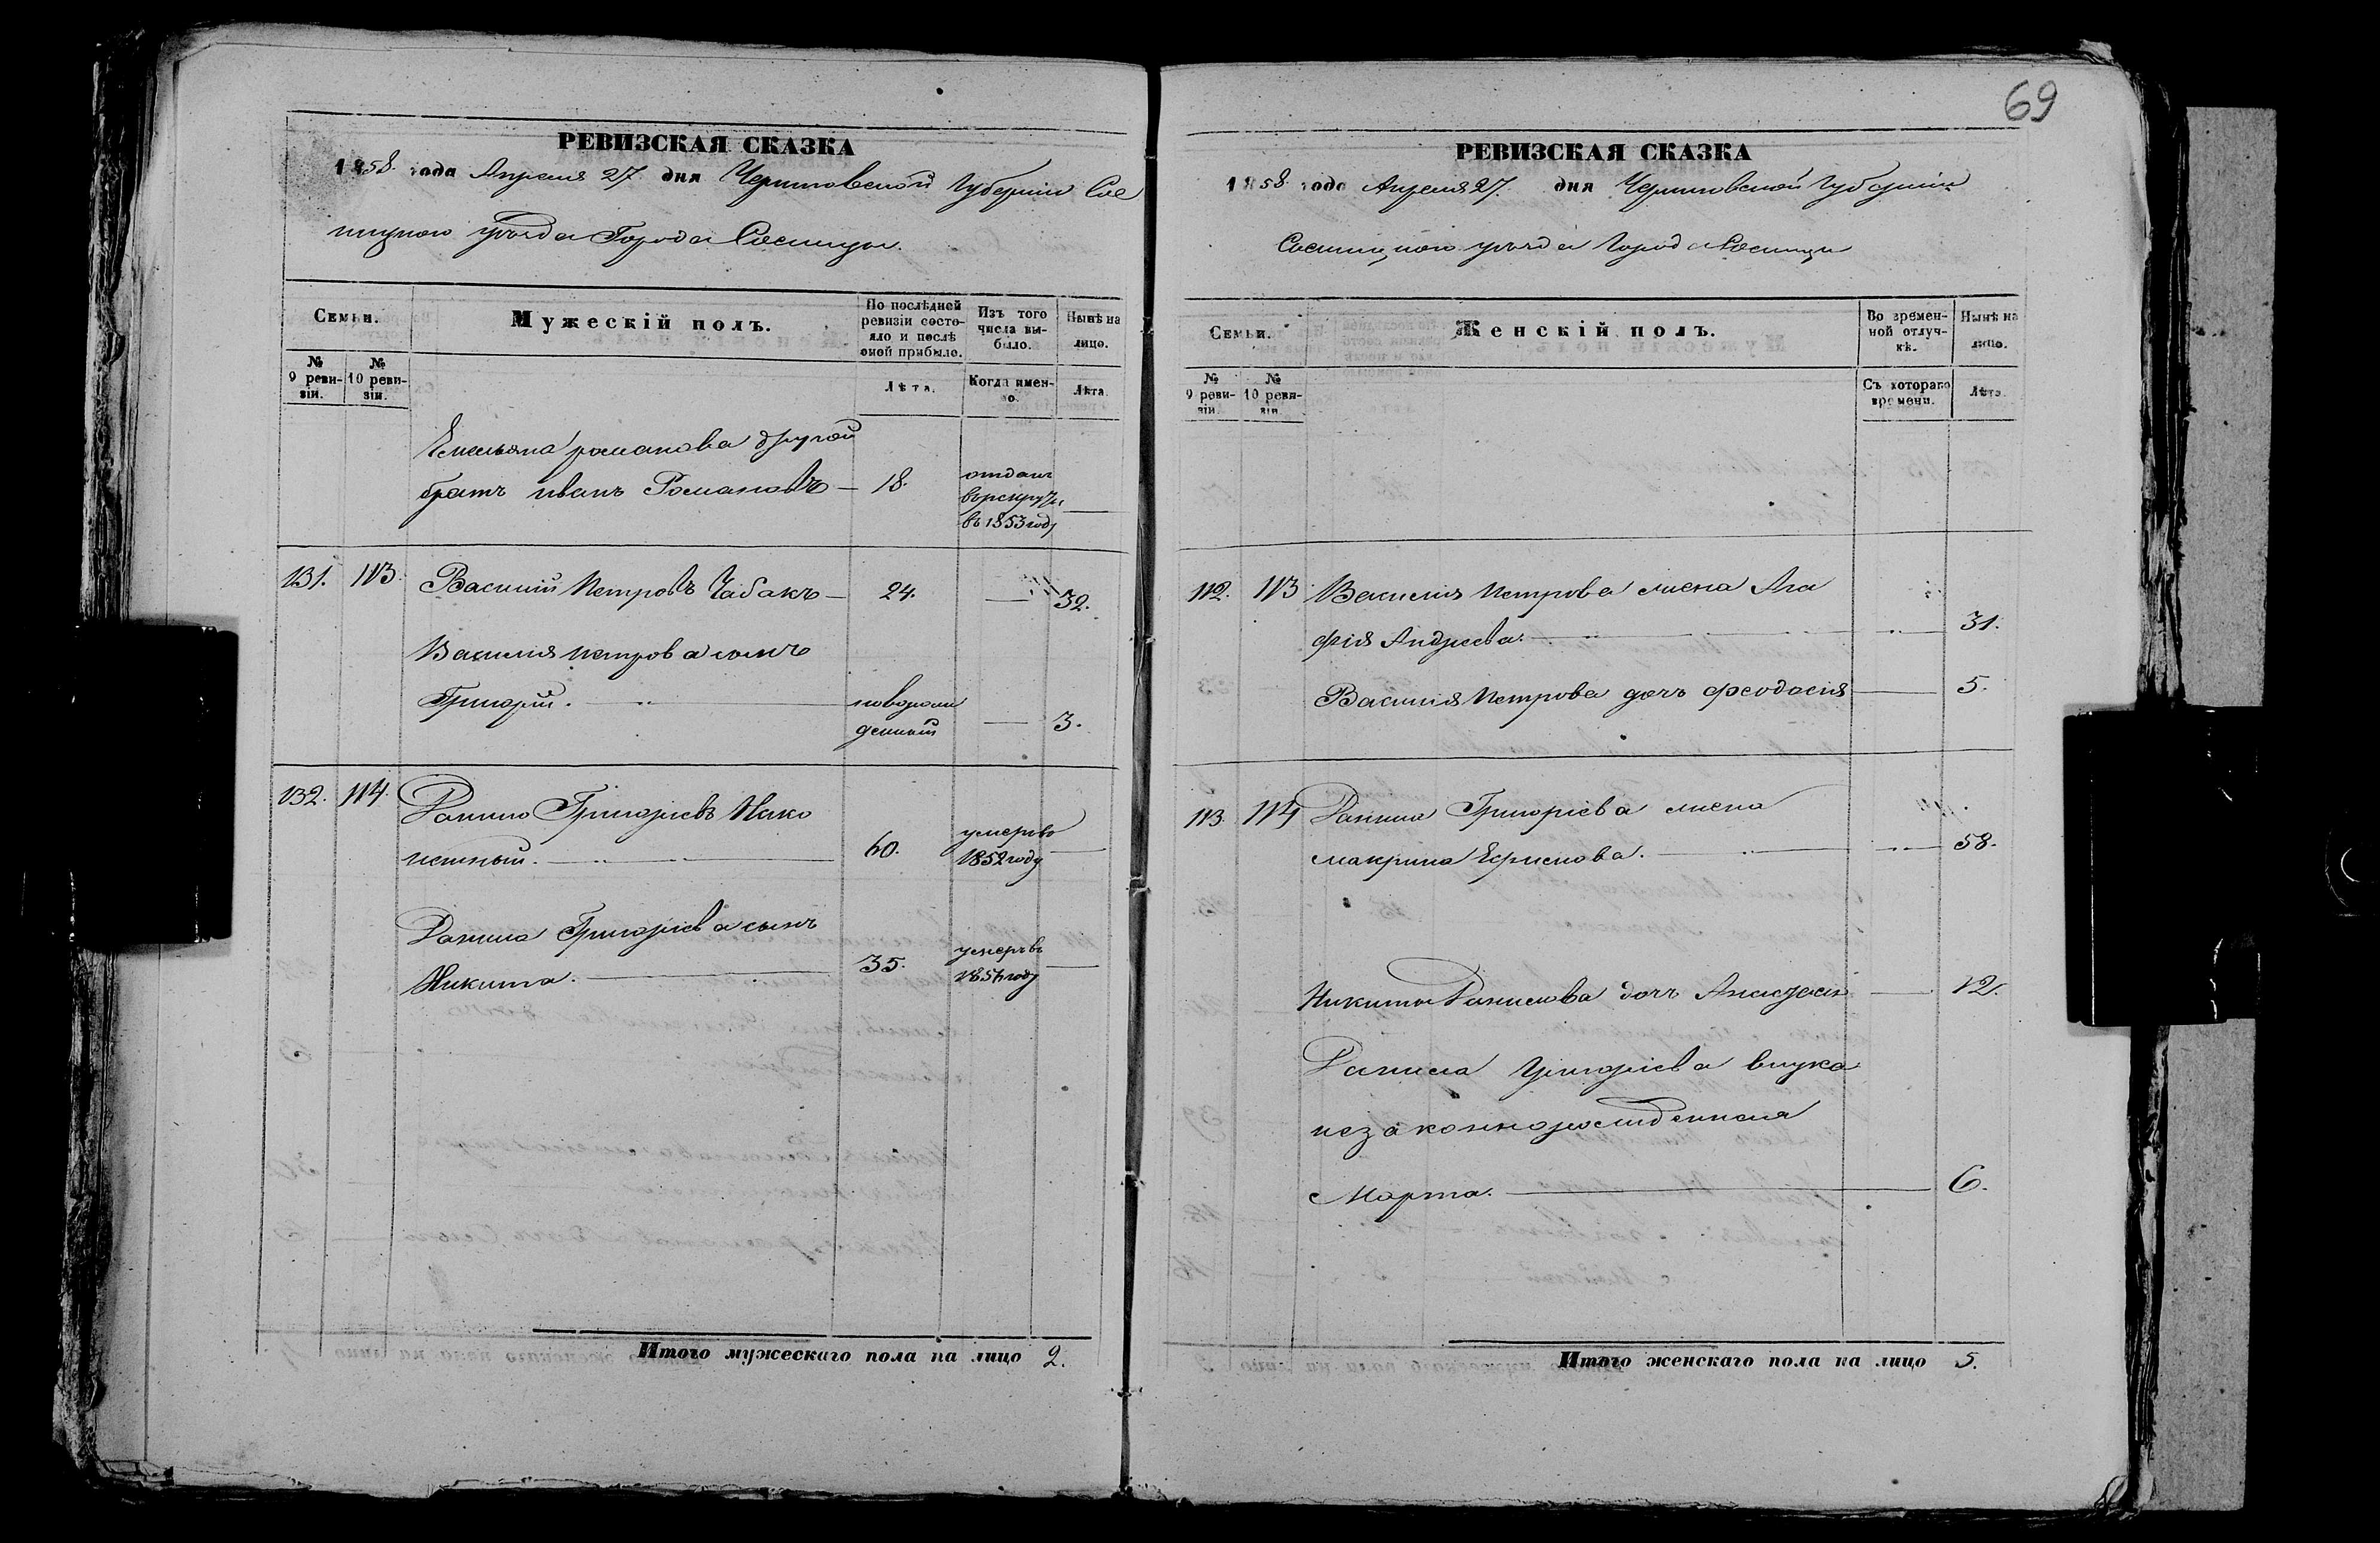 69
РЕВИЗСКАЯ СКАЗКА
1858 года Апреля 27 дня Черниговской Губернии Сос
ницкого уѣзда Города Сосницы.
Семьи.
Мужескій полъ.
По послѣдней ревизіи состо-
яло и послѣ
оной прибыло.
Изъ того
числа вы-
было.
Нынѣ на
лицо.
№
9 реви-
зіи.
№
10 реви-
зіи.
Лѣта.
Когда имен-
но.
Лѣта.
Емельяна романова другой
братъ иванъ Романовъ — 18.
отданъ
в рекруты
въ 1853 году —
131. 113. Василий Петровъ Чабакъ — 24. — 32.
Василия петрова сынъ
Григорий. — новорож
денный — 3.
132. 114. Данило Григориевъ
60. умеръ въ
1852 году —
Данила Григориева сынъ
Никита. — 35. умеръ въ
году —
Итого мужескаго пола на лицо 2.
РЕВИЗСКАЯ СКАЗКА
1858 года Апреля 27. дня Черниговской Губернии
Сосницкого уѣзда Города Сосницы
Семьи.
Женскій полъ.
Во времен-
ной отлуч-
кѣ.
Нынѣ на
лицо.
№
9 реви-
зіи.
№
10 реви-
зіи.
Съ котораго
времени.
Лѣта.
112. 113. Василия Петрова жена Ага
фія Андреева. — 31.
Василия Петрова дочь Феодосия — 5.
113. 114 Данила Григориева жена
макрина Ефимова. — 58.
Никиты Данилова дочь — 12.
Данила Григориева внука
незаконнорожденная
Марта. — 6.
Итого женскаго пола на лицо 5.